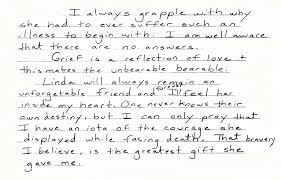 I always grapple with why
she had to ever suffer such an
illness to begin with. I am well aware
that there are no answers.
Grief is a reflection of love +
this makes the unbearable bearable.
Linda will always remain an
unforgetable friend and forever I'll feel her
inside my heart. One never knows their
own destiny, but I can only pray that
I have an iota of the courage she
displayed while facing death. That bravery
I believe, is the greatest gift she
gave me.